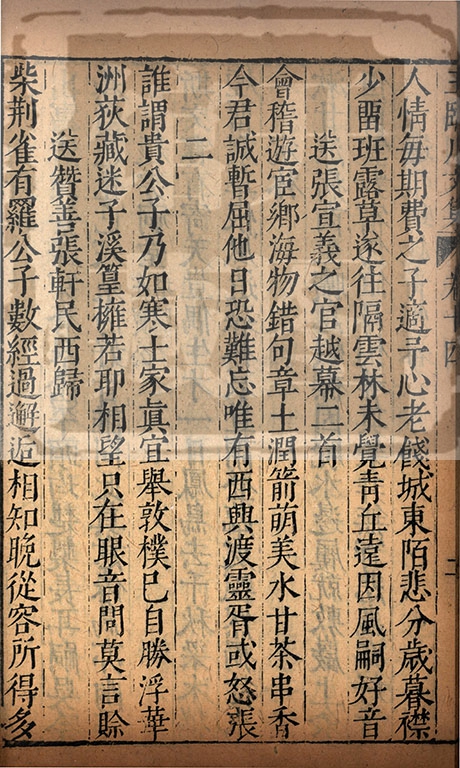 王臨川文集 卷十四
人情每期費之子適予心老餞城東陌悲分歲暮襟
少畱班露草遂往隔雲林未覺靑丘遠因風嗣好音
送張宣義之官越幕二首
會稽遊宦鄉海物錯句章土潤箭萌美水甘茶串香
今君誠暫屈他日恐難忘唯有西興渡靈胥或怒張
二
誰謂貴公子乃如寒士家眞宜舉敦樸已自勝浮華
洲荻藏迷子溪篁擁若耶相望只在眼音問莫言賒
送贊善張軒民西歸
柴荆雀有羅公子數經過邂逅相知晚從容所得多